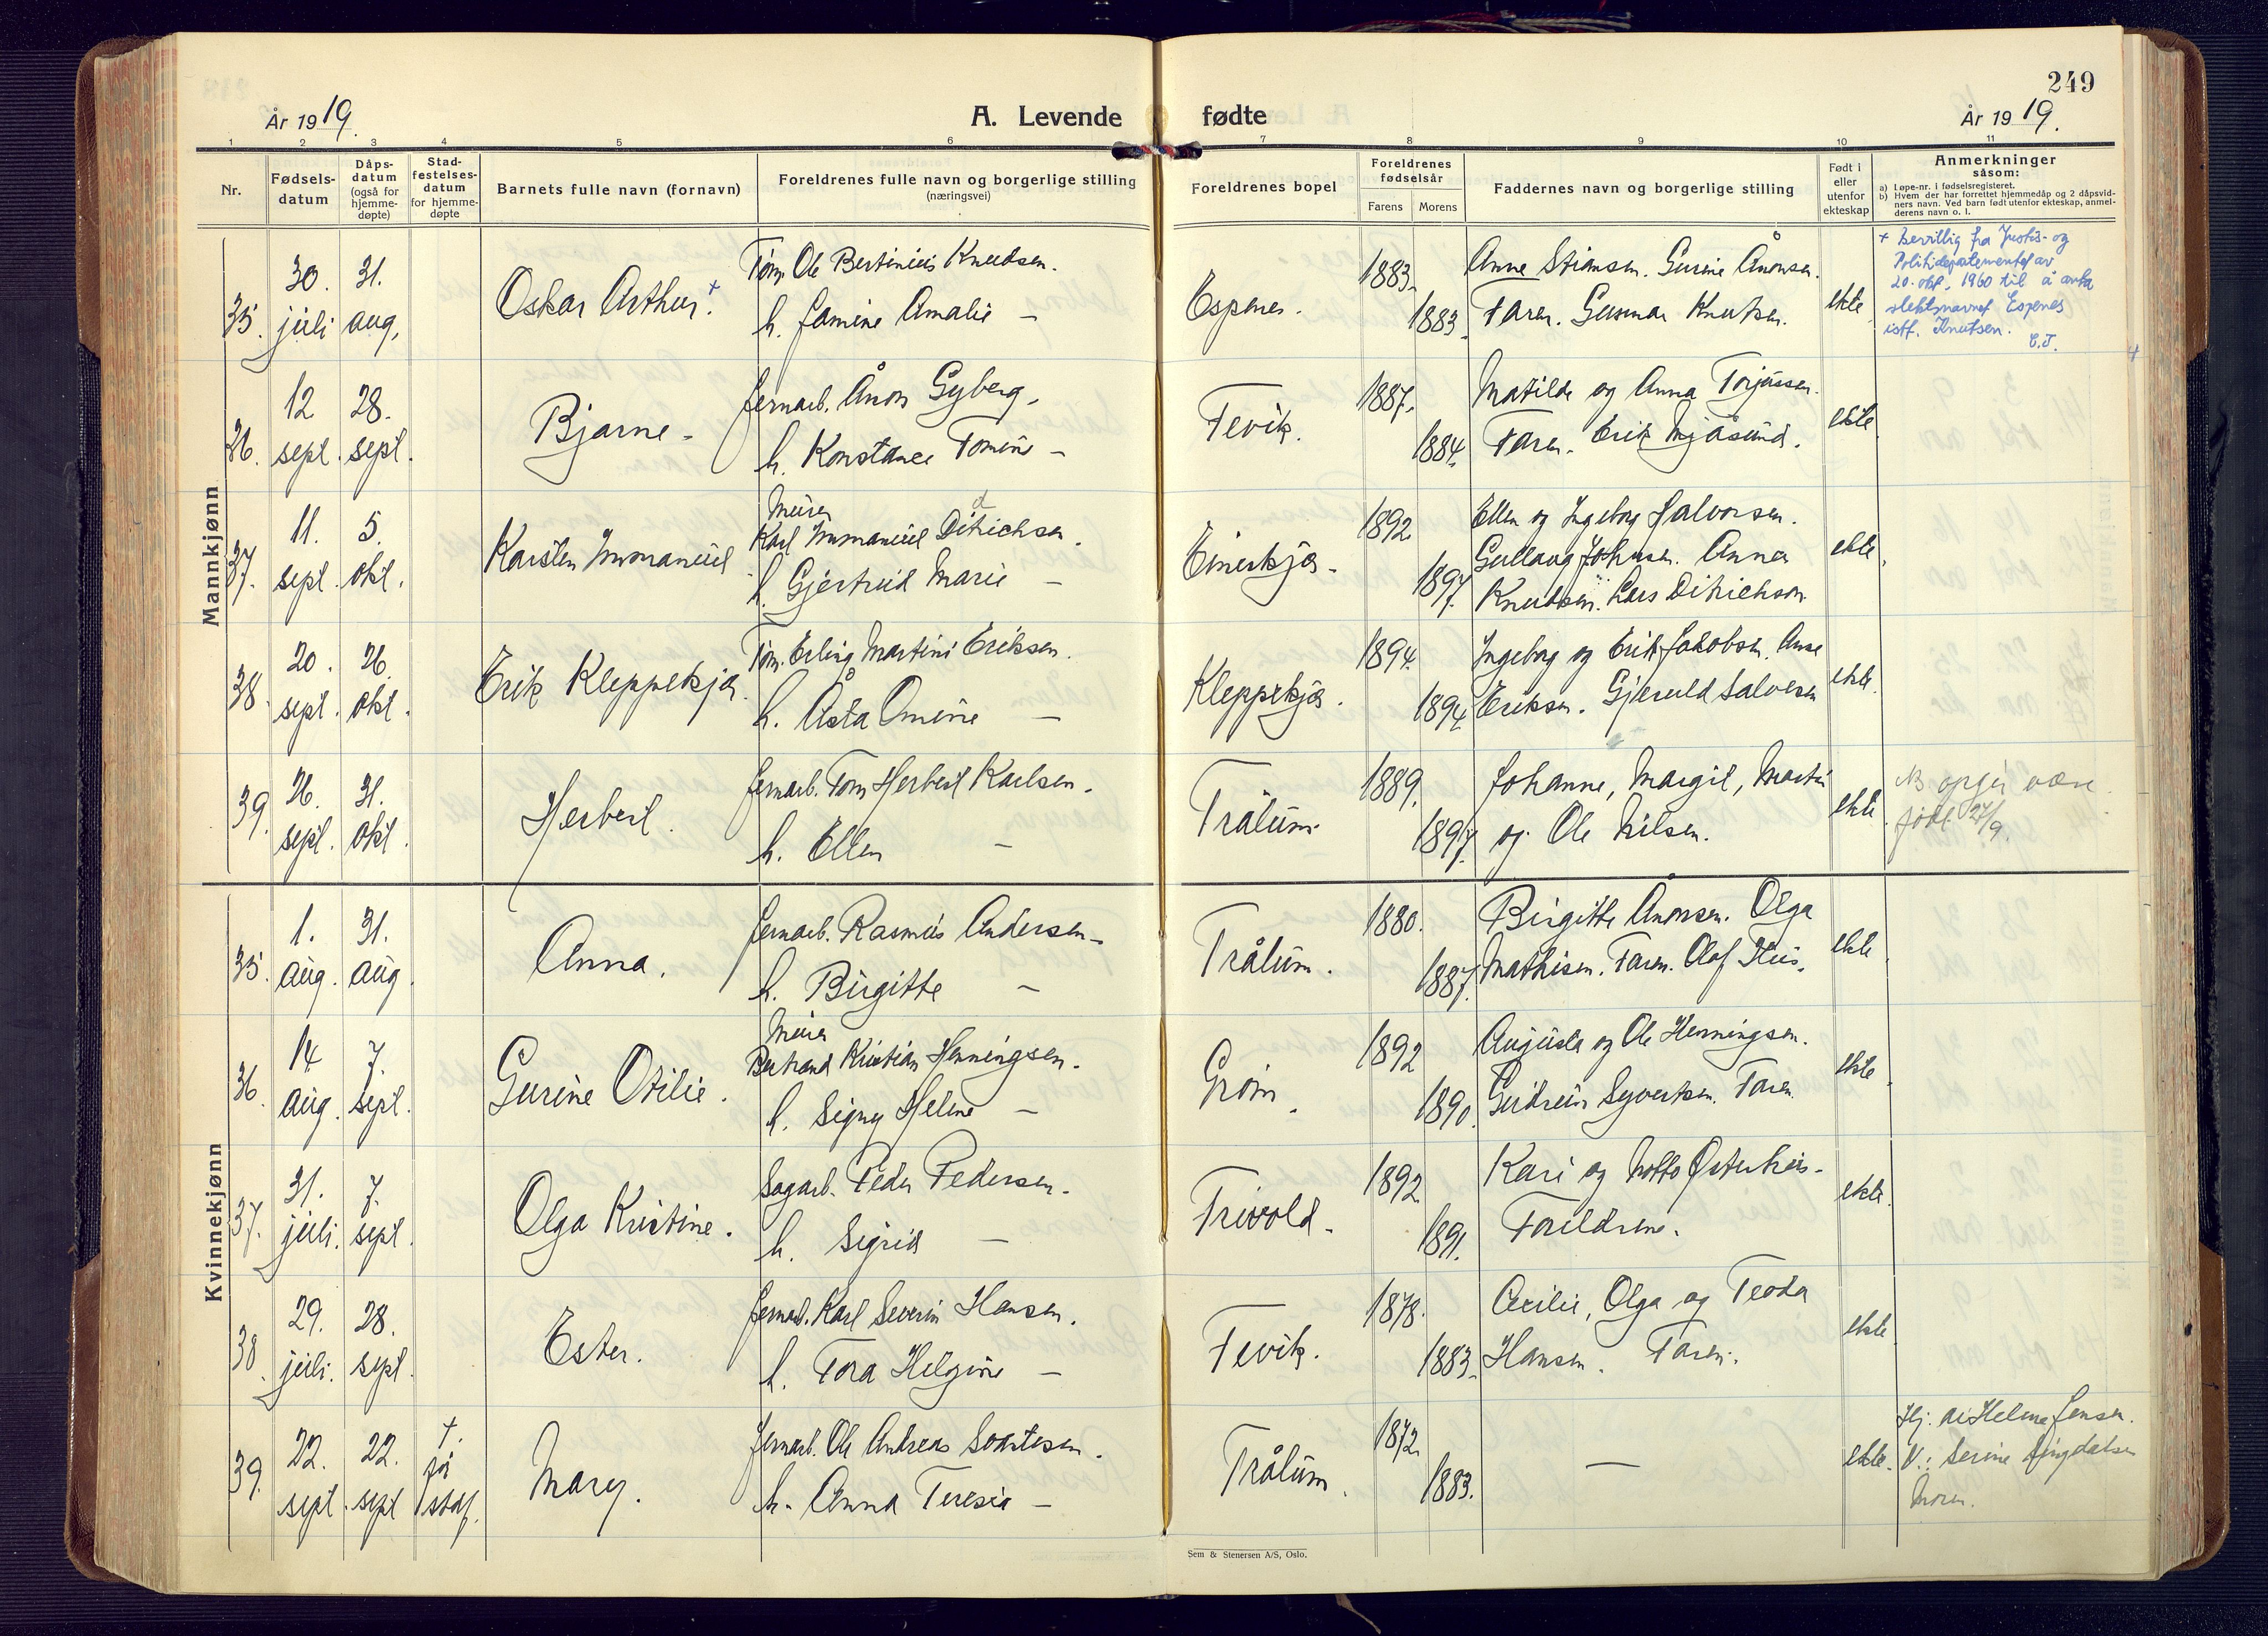 249
År 1919.
A. Levende fødte
År 1919.
1 2 3 4 5 6 7 8 9 10 11
Nr.
Fødsels-
datum
Dåps-
datum
(også for
hjemme-
døpte)
Stad-
festelses-
datum
for hjemme-
døpte
Barnets fulle navn (fornavn)
Foreldrenes fulle navn og borgerlige stilling
(næringsvei)
Foreldrenes bopel
Foreldrenes
fødselsår
Farens Morens
Faddernes navn og borgerlige stilling
Født i
eller
utenfor
ekteskap
Anmerkninger
såsom:
a) Løpe-nr. i fødselsregisteret.
b) Hvem der har forrettet hjemmedåp og 2 dåpsvid-
ners navn. Ved barn født utenfor ekteskap, anmel-
derens navn o. l.
Mannkjønn
35. 30. juli 31. aug, Oskar Arthur. +
Tøm. Ole Bertinius Knudsen.
h. Jamine Amalie —
Espenes. 1883. 1883.
Anne Stiansen. Gurine Ånonsen.
Faren. Gunnar Knutsen.
ekte
+ Bevillig fra Justis- og
Politidepartementet av
20. okt. 1960 til å anta
slektsnavnet Espenes
istf. Knutsen.
C.J.
36. 12 sept. 28. sept. Bjarne -
Jernarb. Ånon Gyberg.
h. Konstance Tomine —
Fevik. 1887. 1884.
Matilde og Anna Torjussen.
Faren. Erik Mjåsund.
ekte
37. 11. sept. 5. okt. Karsten Immanuel
Murer
Karl Immanuel Ditrichsen.
h. Gjertrud Marie —
Einerkjær. 1892 1897.
Ellen og Ingeborg Halvorsen.
Gullaug Johnsen. Anna
Knudsen. Lars Ditrichson
ekte.
38. 20. sept. 26. okt. Erik Kleppekjær.
Tøm. Erling Martini Eriksen.
h. Åsta Omine —
Kleppekjær. 1894. 1894.
Ingeborg og Erik Jakobsen. Anne
Eriksen. Gjeruld Salvesen
ekte.
39. 26. sept. 31. okt. Herbert.
Jernarb. Tom Herbert Karlsen.
h. Ellen —
Trålum. 1889. 1897.
Johanne, Margit, Martin
og Ole Nilsen.
ekte.
NB opgir være
født 27/9.
Kvinnekjønn
35. 1. aug. 31. aug. Anna.
Jernarb. Rasmus Andersen.
h. Birgitte —
Trålum. 1880. 1887.
Birgitte Ånonsen. Olga
Mathisen. Faren. Olaf Hus.
ekte.
36. 14 aug. 7. sept. Gurine Otilie.
Murer
Bertrand Kristian Henningsen.
h. Signy Helene —
Grøm. 1892 1890.
Augusta og Ole Henningsen.
Gudrun Syvertsen. Faren
ekte.
37. 31. juli. 7. sept. Olga Kristine.
Sagarb. Peder Pedersen.
h. Sigrid —
Trivold. 1892 1891.
Kari og Notto Østerhus.
Foreldrene.
ekte.
38. 29. juli. 28. sept. Ester.
Jernarb. Karl Severin Hansen.
h. Tora Helgine —
Fevik. 1878. 1883.
Cecilie, Olga og Teoda
Hansen. Faren.
ekte.
39. 22. sept. 22. sept +. før stdf. Mary.
Jernarb. Ole Andreas Svartesen.
h. Anna Teresia —
Trålum. 1872. 1883.
—
ekte.
Hj. av Helene Jensen.
V.: Serine Lyngdalsen
Moren.
Sem & Stenersen A/S, Oslo.